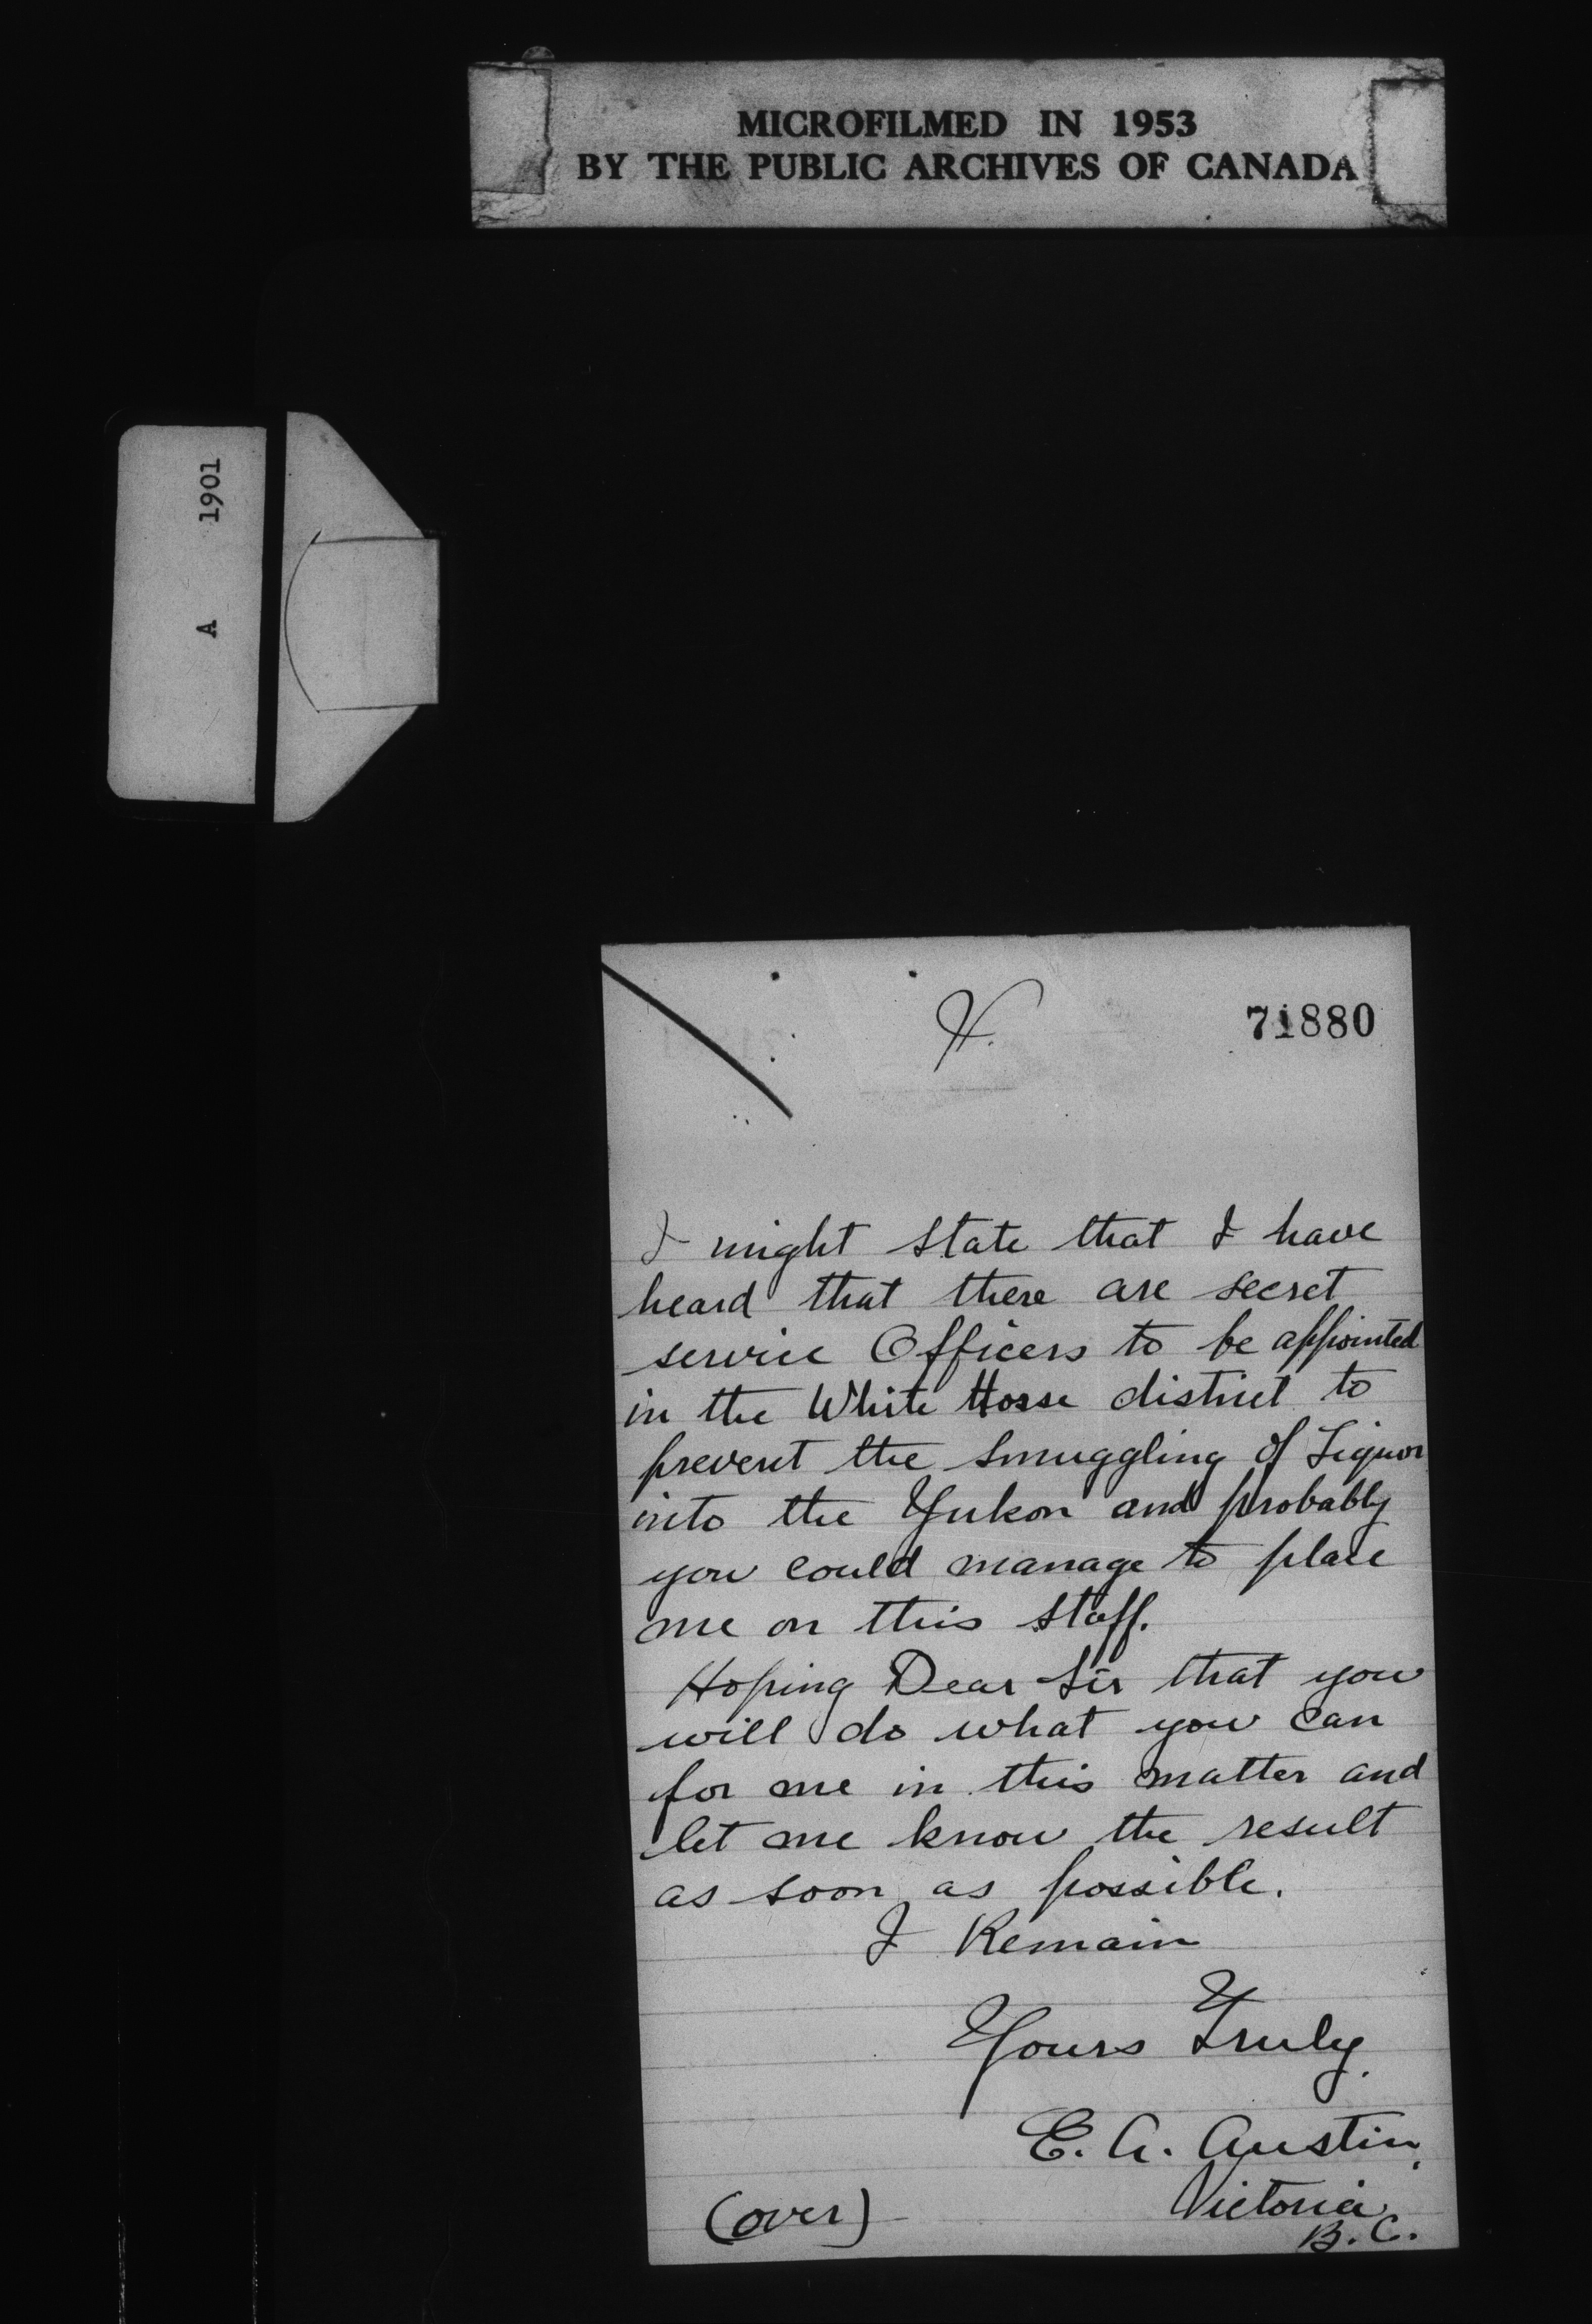 MICROFILMED IN 1953
BY THE PUBLIC ARCHIVES OF CANADA
A 1901
71880
I might state that I have
heard that there are secret
service Officers to be appointed
in the White Horse district to
prevent the smuggling of Liquor
into the Yukon and probably
you could manage to place
me on this staff.
Hoping Dear Sir that you
will do what you can
for me in this matter and
let me know the result
as soon as possible.
I Remain
Yours Truly
E. A. Austin,
Victoria
B.C.
(over)